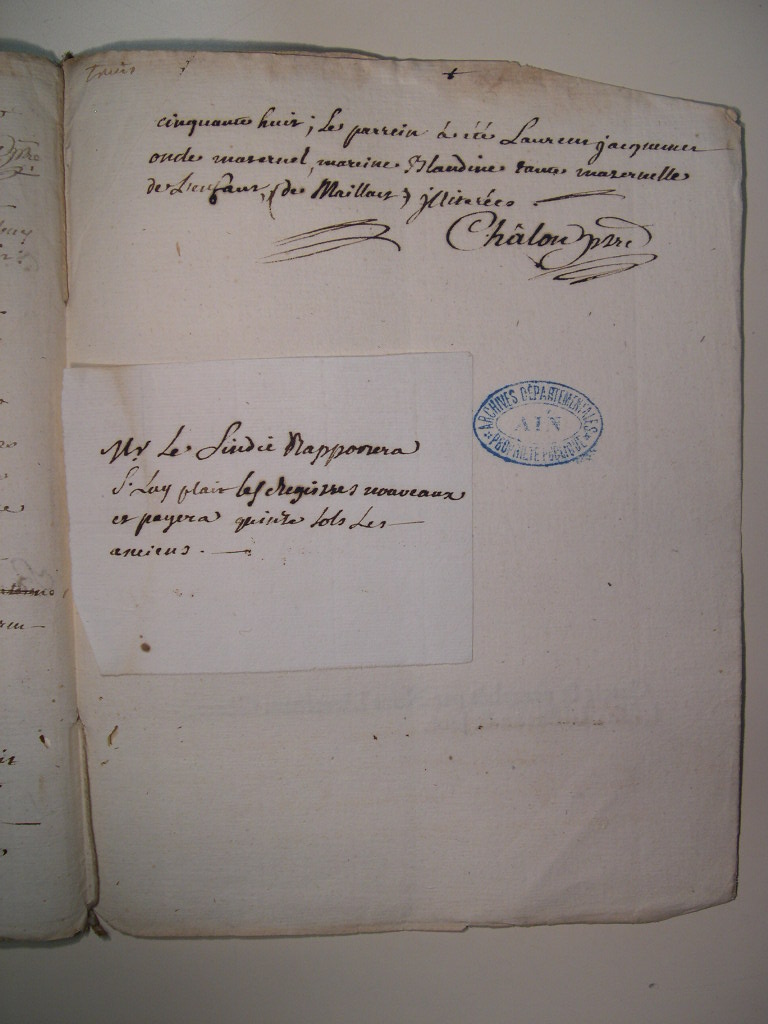 cinquante huit ; Le parrein à été Laurent jacquemet
oncle maternel, mareine Blandine tante maternelle
de L'enfant, (de Maillat) jllitérées
Châlon ptre
ARCHINES DÉPARTEMENTALES
AIN
PROPRIÉTÉ PUBLIQUE
Mr Le Sindic Rapportera
S'. Luy plait les Registres nouveaux
et payera quinze sols Les
anciens.